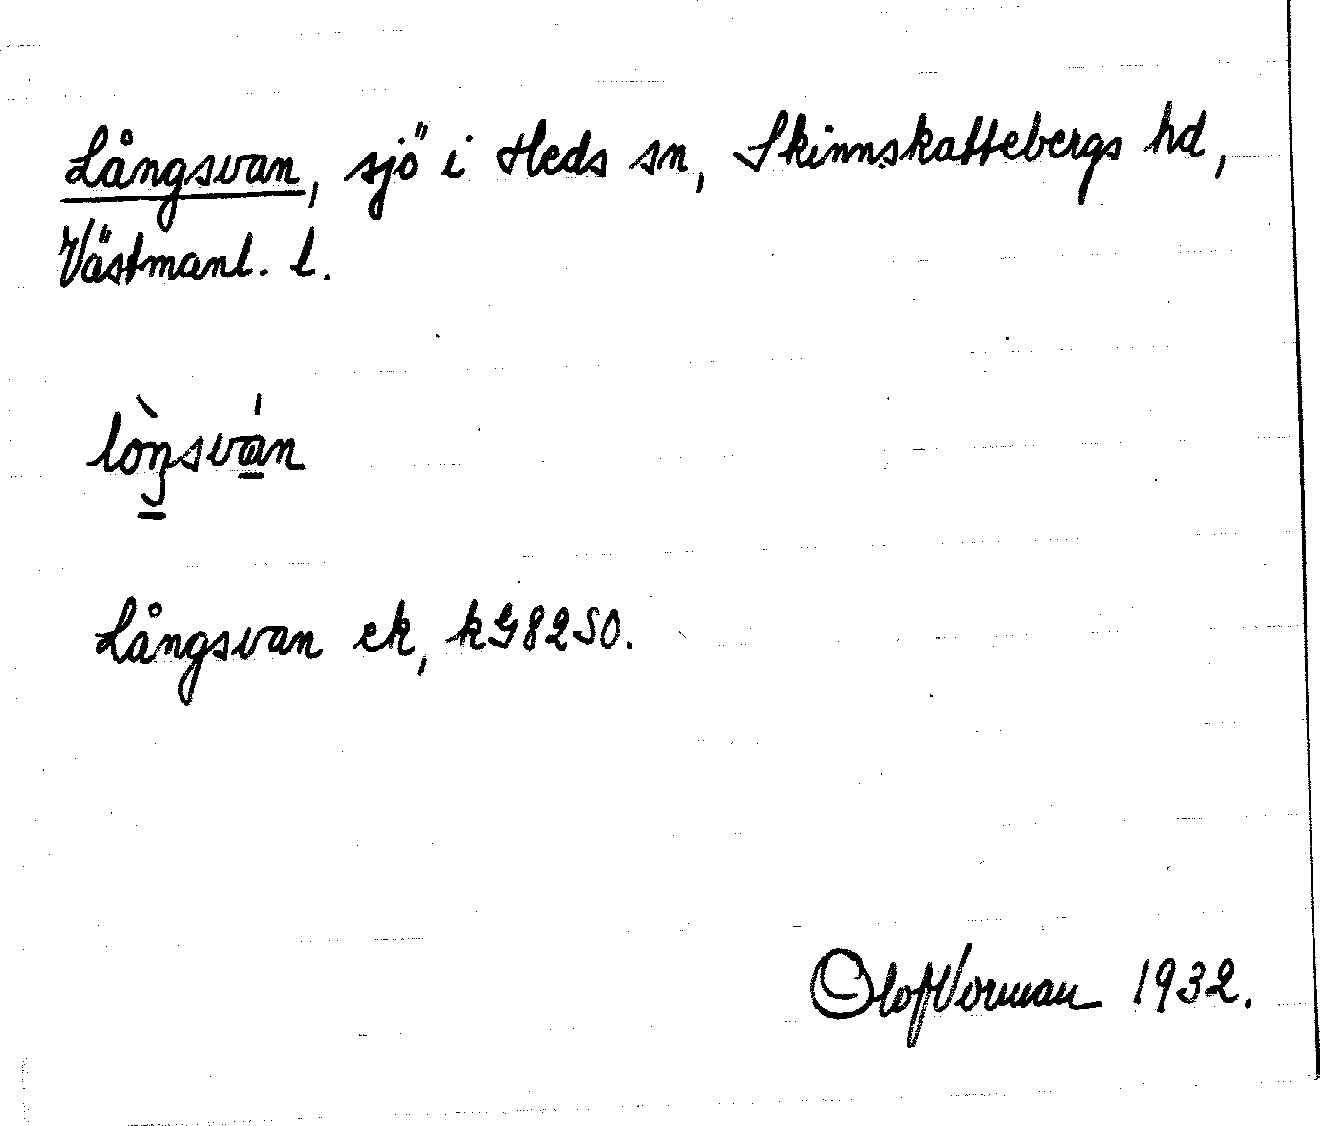 Långsvan, sjö i Heds sn, Skinnskattebergs hd,
Västmanl. l.
lòŋsván
Långsvan ek, kG82SO.
Olof Vorman 1932.